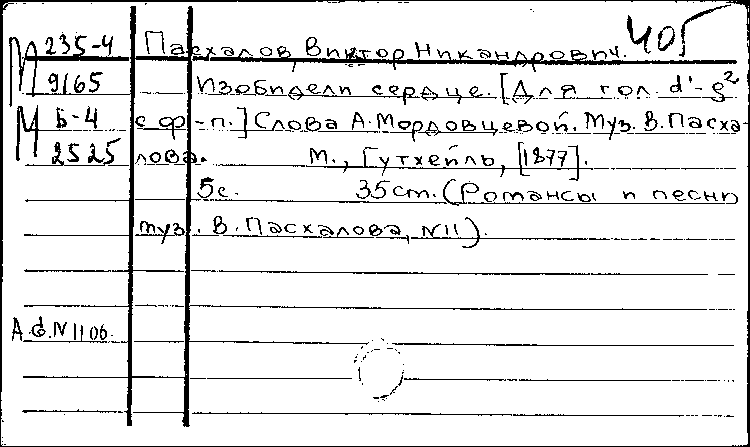 405
М 235-4 Пасхалов, Виктор Никандрович.
9165 Изобидели сердце. [Для гол. d'-g²
М Б-4 с ф-п.] Слова А. Мордовцевой. Муз. В. Пасха-
2525 лова. М., Гутхейль, [1877].
5с. 35 cm. (Романсы и песни
муз. В. Пасхалова, N11).
А.ф.N 1106.